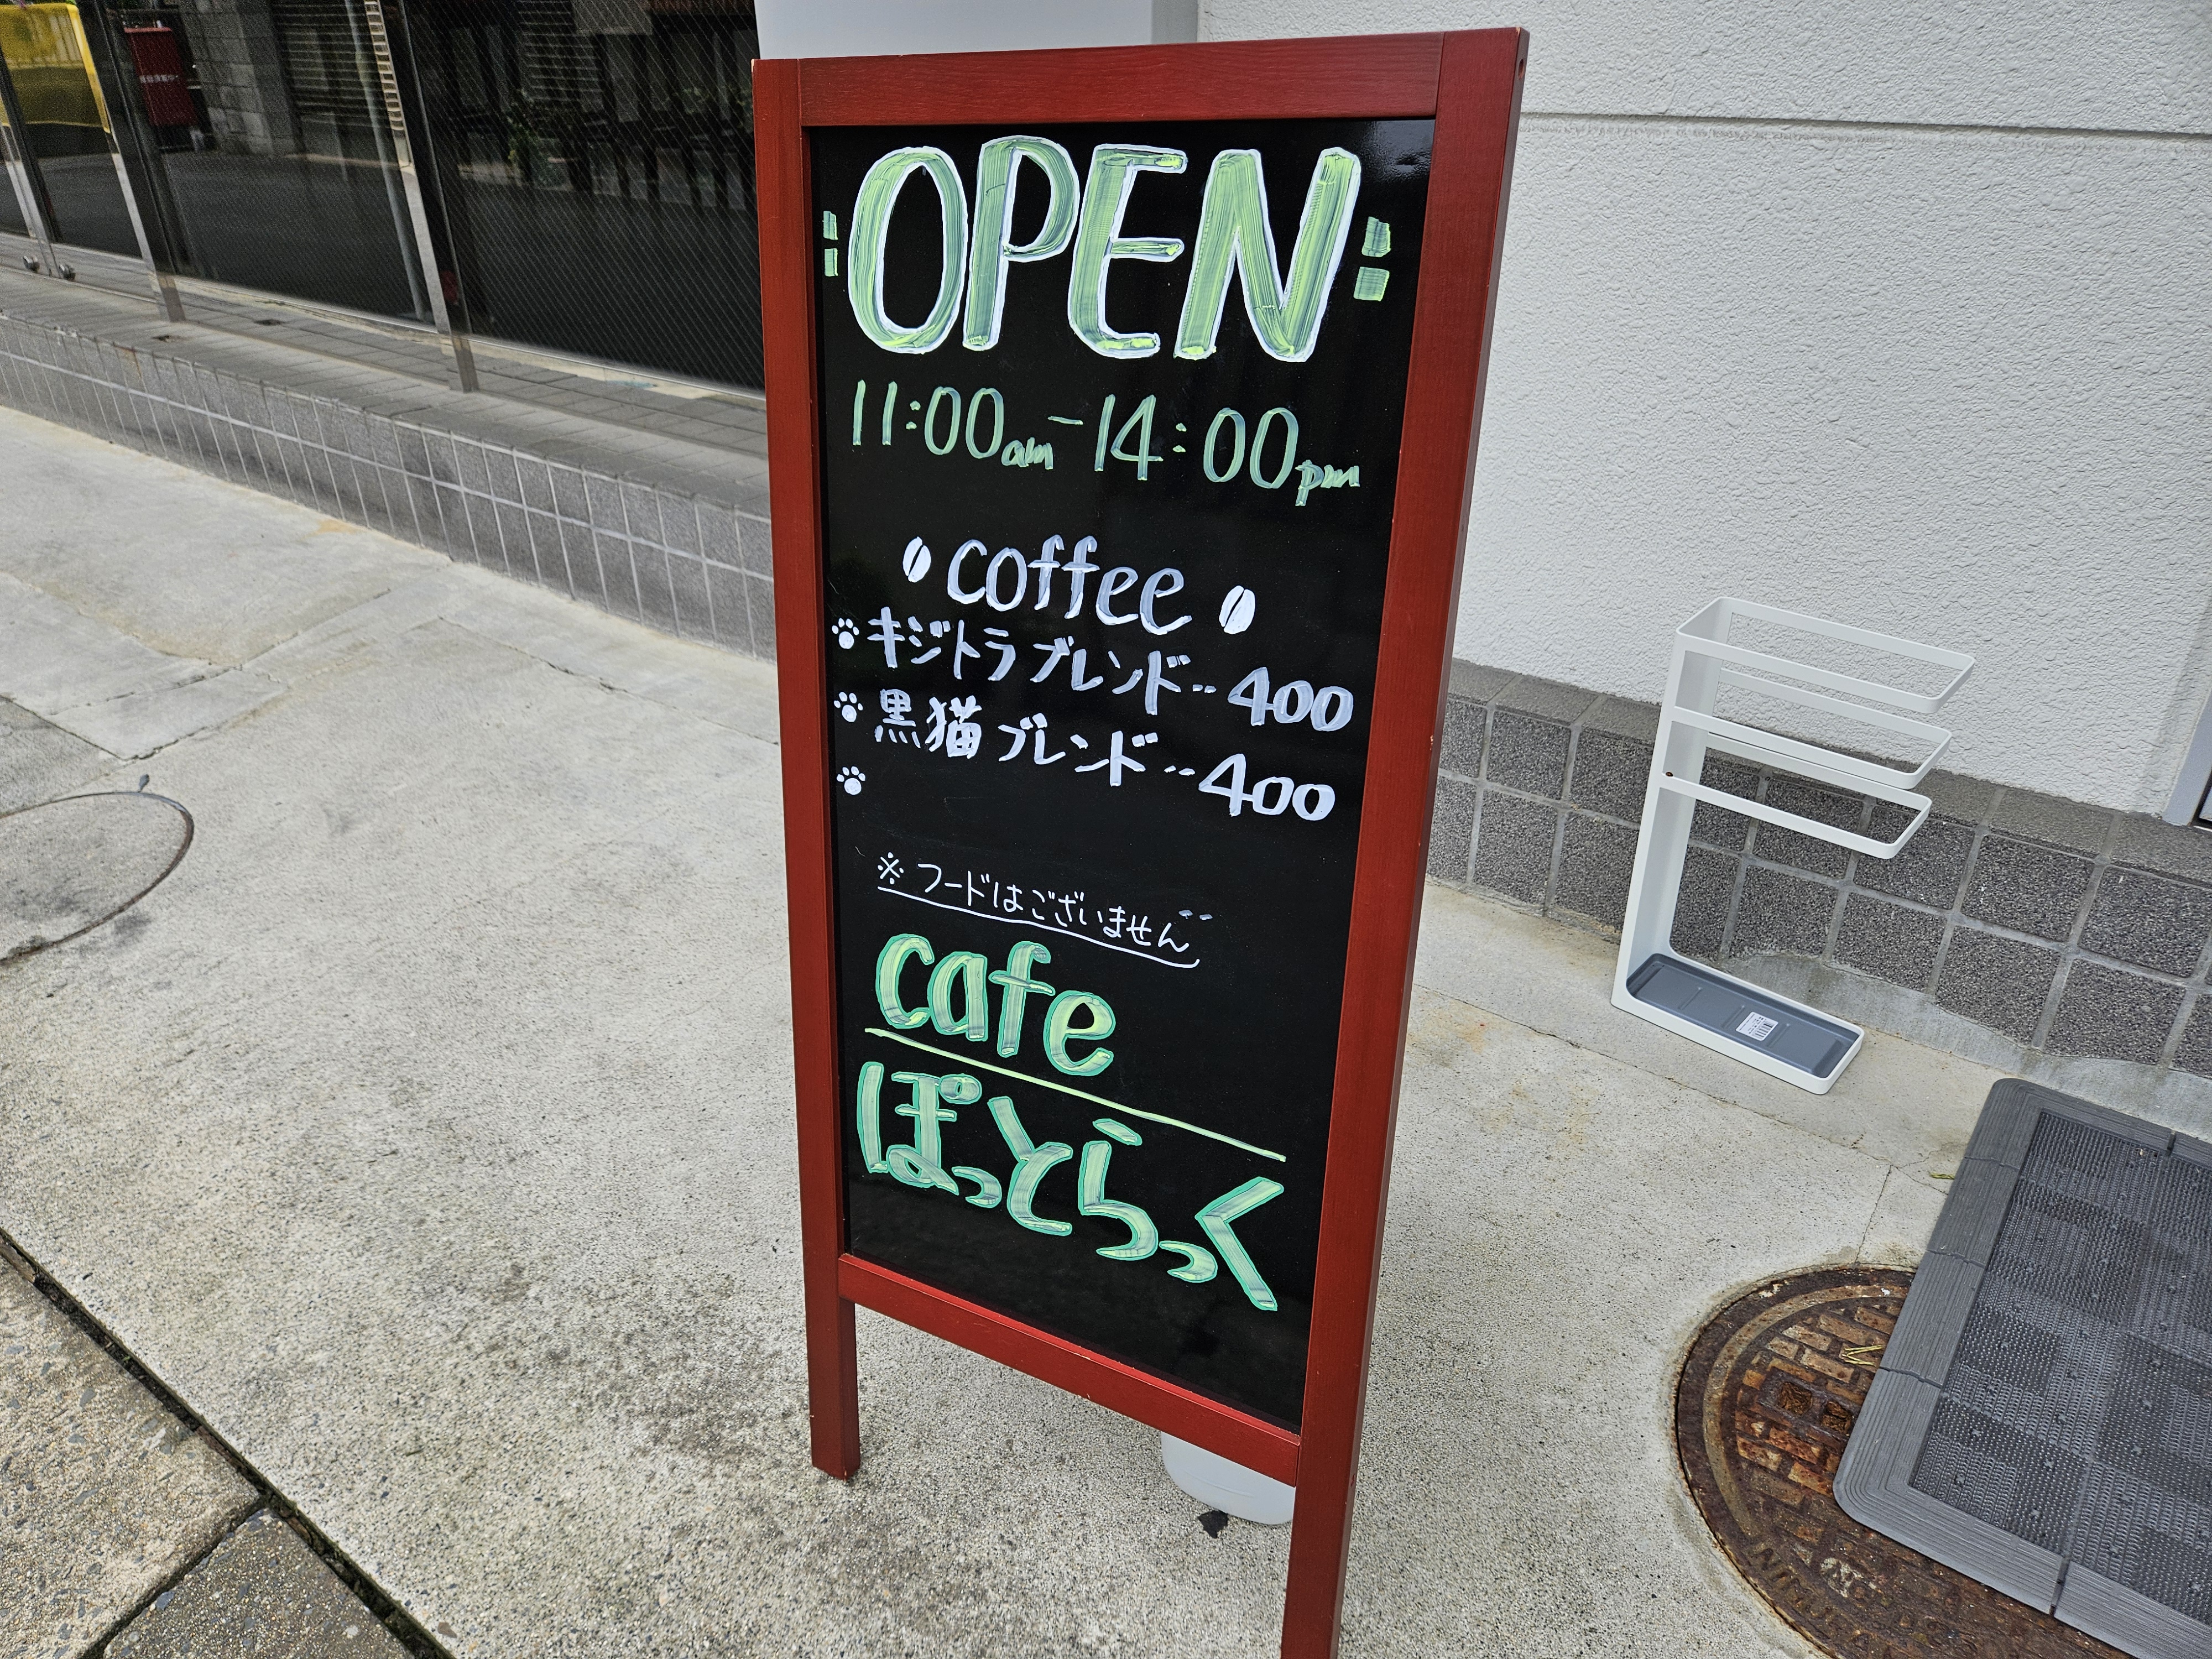 OPEN
11:00am-14:00pm
coffee
キジトラブレンド‥400
黒猫ブレンド‥400
※フードはございません
cafe
ぽっとらっく